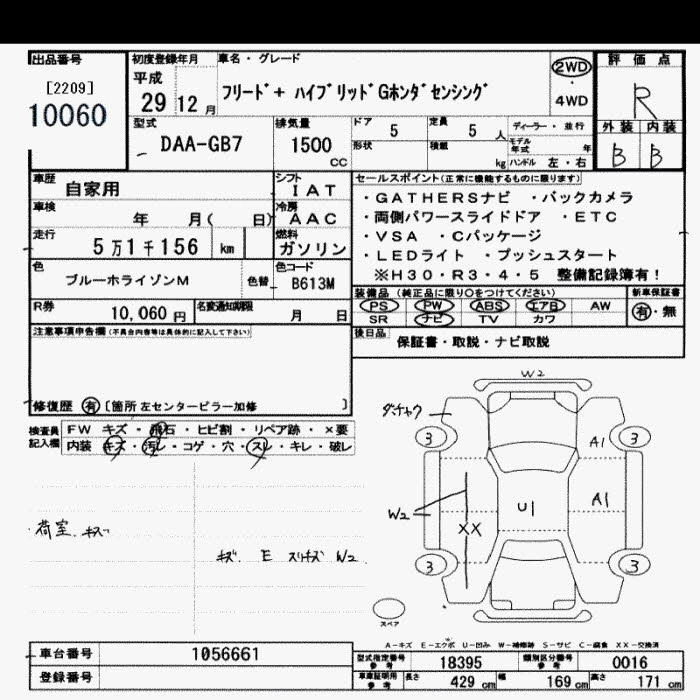 出品番号
[2209]
10060
初度登録年月
平成
29 12 月
車名・グレード
フリード+ ハイブリッドGホンダセンシング
2WD
・
4WD
評価点
R
外装 内装
B B
型式
DAA-GB7
排気量
1500
cc
ドア 5
定員 5 人
形状
積載 kg
ディーラー・並行
モデル年式 年
ハンドル 左・右
車歴
自家用
シフト
IAT
車検
年 月( 日)
冷房
AAC
走行
5万1千156 km
燃料
ガソリン
色
ブルーホライゾンM
色替
色コード
B613M
R券
10,060 円
名変通知期限
月 日
セールスポイント(正常に機能するものに限ります)
・GATHERSナビ ・バックカメラ
・両側パワースライドドア ・ETC
・VSA ・Cパッケージ
・LEDライト ・プッシュスタート
※H30・R3・4・5 整備記録簿有!
装備品(純正品に限り○をつけてください)
PS PW ABS エアB AW
SR ナビ TV カワ
新車保証書
有・無
後日品
保証書・取説・ナビ取説
注意事項申告欄(不具合内容等は具体的に記入して下さい)
修復歴 有 〔箇所 左センターピラー加修 〕
検査員記入欄
FW キズ・飛石・ヒビ割・リペア跡・×要
内装 キズ・汚レ・コゲ・穴・スレ・キレ・破レ
荷室.キズ
キズ. E スリキズ W2
W2
3
3
A1
A1
U1
W2
XX
3
3
スペア
A-キズ E-エクボ U-凹み W-補修跡 S-サビ C-腐食 XX-交換済
車台番号
1056661
登録番号
型式指定番号
参考
18395
類別区分番号
参考
0016
車庫証明用
参考
長さ 429 cm
幅 169 cm
高さ 171 cm